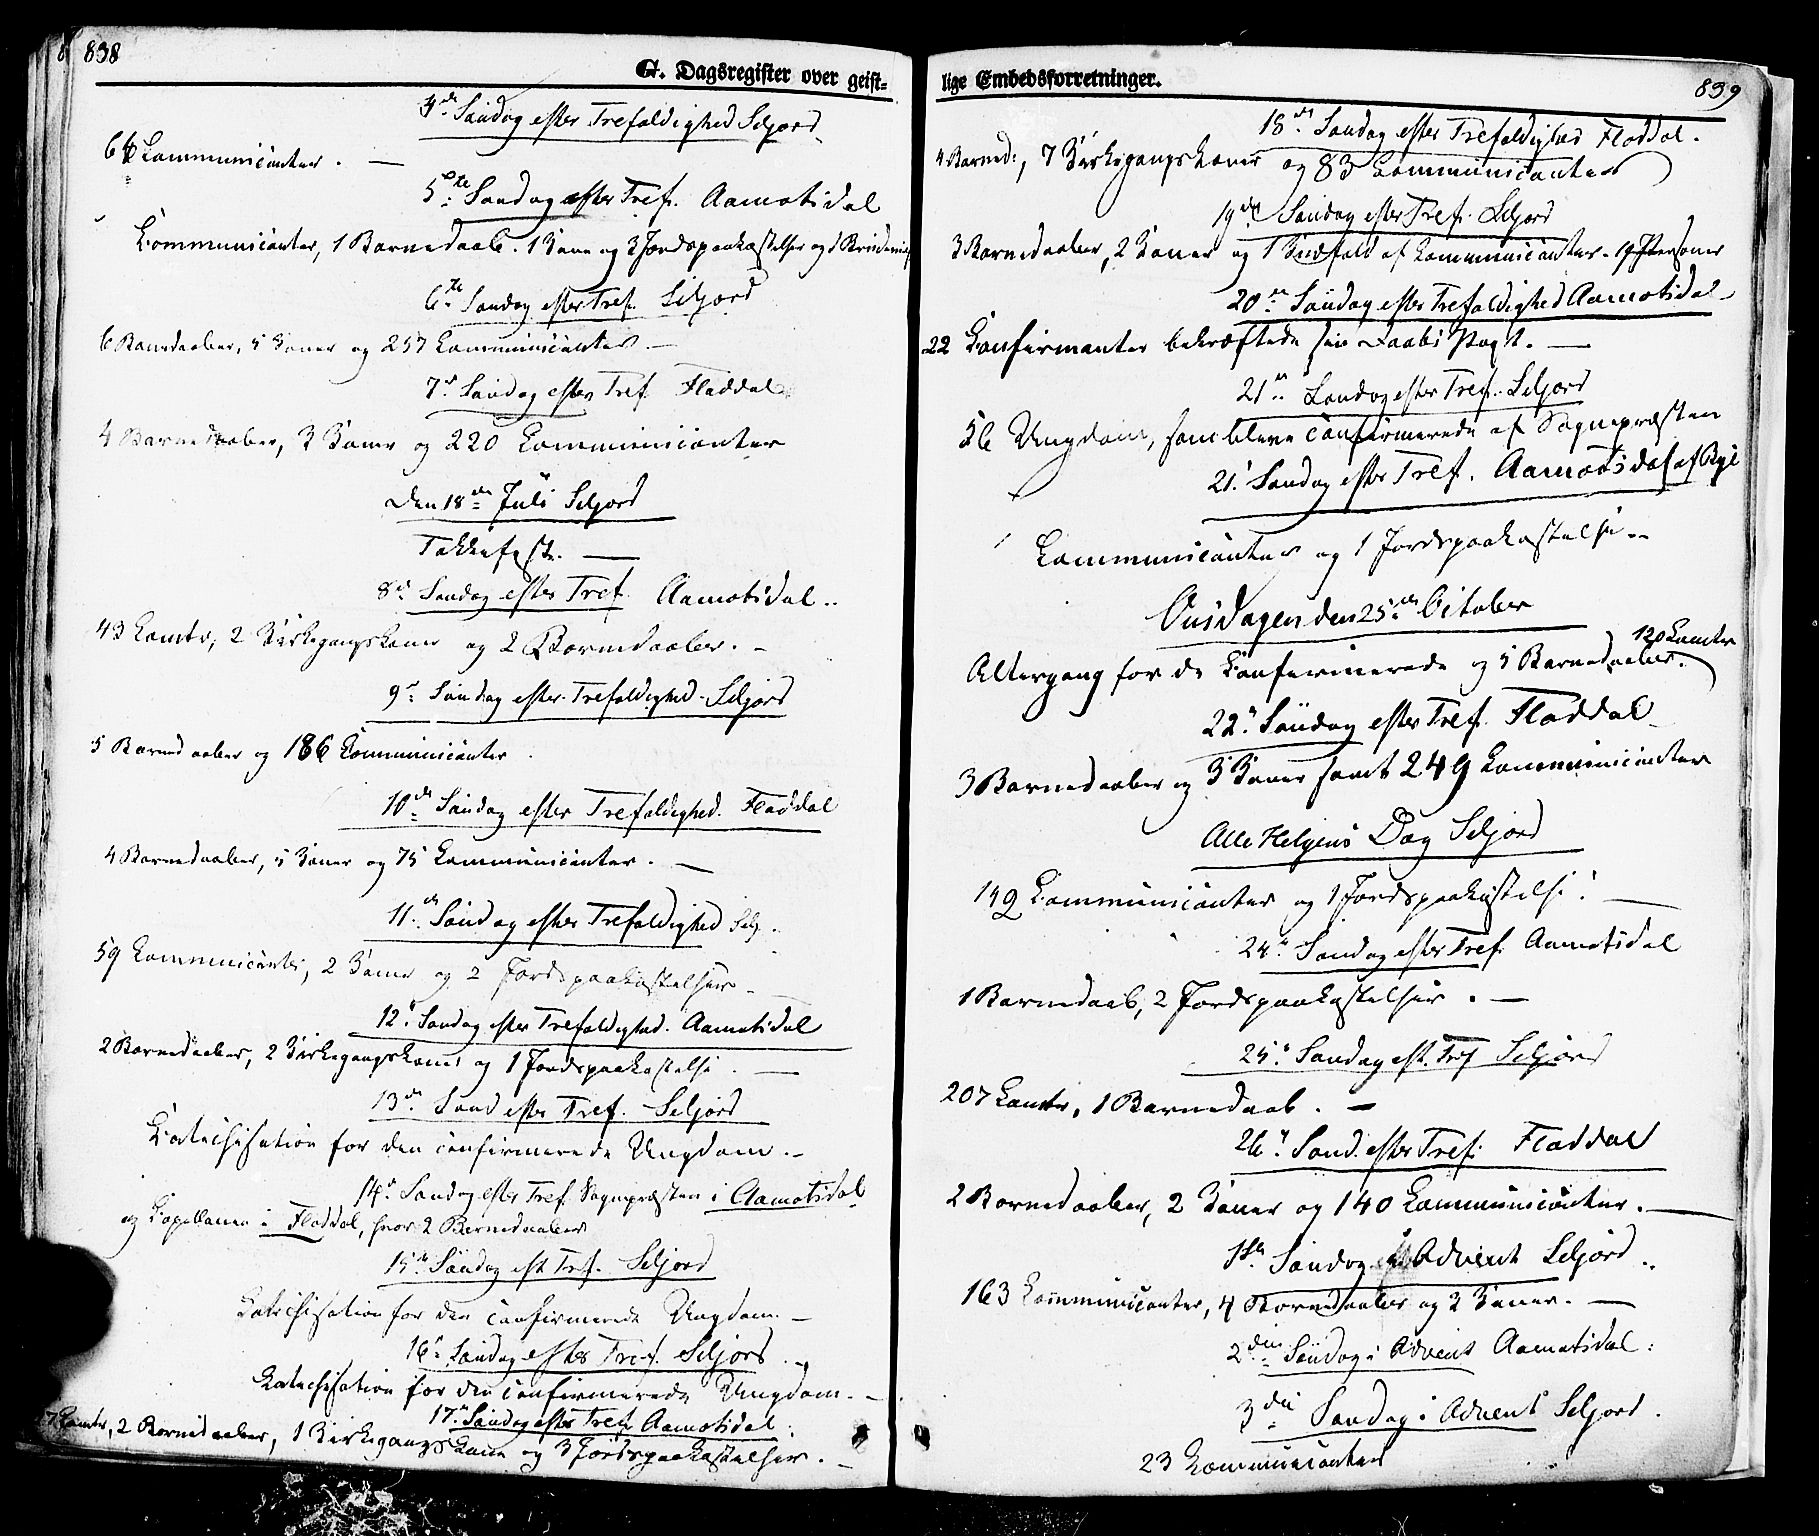 838
G. Dagsregister over geist-
4de Søndag efter Trefoldighed Seljord
64 Communicanter. —
5te Søndag efter Tref. Aamotsdal
Communicanter, 1 Barnedaab. 1 Kone og 3 Jordspaakastelser og 1
6te Søndag efter Tref. Seljord
6 Barnedaaber, 5 Koner og 237 Communicanter. —
7de Søndag efter Tref. Fladdal
4 Barnedaaber, 3 Koner og 220 Communicanter
Den 18de Juli Seljord
Takkefest. —
8de Søndag efter Tref. Aamotsdal..
43 Comtr, 2 Kirkegangskoner og 2 Barnedaaber. —
9de Søndag efter Trefoldighed Seljord
5 Barnedaaber og 186 Communicanter.
10de Søndag efter Trefoldighed. Fladdal
4 Barnedaaber, 5 Koner og 75 Communicanter. —
11de Søndag efter Trefoldighed Selj.
59 Communicanter, 2 Koner og 2 Jordspaakastelser. —
12te Søndag efter Trefoldighed. Aamotsdal
2 Barnedaaber, 2 Kirkegangskoner og 1 Jordspaakastelse. —
13de Sønd efter Tref. Seljord
Catechisation for den confirmerede Ungdom. —
14de Søndag efter Tref. Sognepræsten i Aamotsdal
og Capellanen i Fladdal, hvor 2 Barnedaaber
15de Søndag eft Tref. Seljord
Catechisation for den confirmerede Ungdom. —
16de Søndag efter Tref. Seljord.
Catechisation for den confirmerede Ungdom. —
17de Søndag efter Tref Aamotsdal.
7 Comtr, 2 Barnedaaber, 1 Kirkegangskone og 3 Jordspaakastelser. —
839
lige Embedsforretninger.
18de Søndag efter Trefoldighed Fladdal.
4 Barned:, 7 Kirkegangskoner og 83 Communicanter
19de Søndag efter Tref. Seljord
3 Barnedaaber, 2 Koner og 1 Kuldfald af Communicanter. 19 Personer
20de Søndag efter Trefoldighed Aamotsdal
22 Confirmanter bekræftede sin Daabs Pagt. —
21de Søndag efter Tref. Seljord
56 Ungdom, som bleve confirmerede af Sognepræsten
21. Søndag efter Tref. Aamotsdal af
Communicanter og 1 Jordspaakastelse..
Onsdagen den 25de October
Altergang for de Confirmerede og 5 Barnedaaber. 120 Comtr
22de Søndag efter Tref. Fladdal
3 Barnedaaber og 3 Koner samt 249 Communicanter
Alle Helgens Dag Seljord
192 Communicanter og 1 Jordspaakastelse. —
24de Søndag efter Tref. Aamotsdal
1 Barnedaab, 2 Jordspaakastelser. —
25de Søndag eft. Tref Seljord
207 Comtr, 1 Barnedaab. —
26de Sønd. efter Tref. Fladdal
2 Barnedaaber, 2 Koner og 140 Communicanter. —
1ste Søndag i Advent Seljord..
163 Communicanter, 4 Barnedaaber og 2 Koner. —
2den Søndag i Advent Aamotsdal:
3die Søndag i Advent Seljord.
23 Communicanter